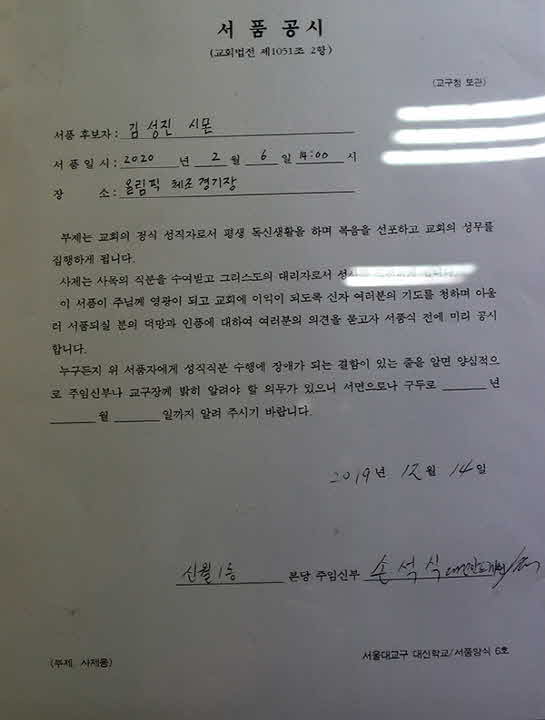 서 품 공 시
(교회법전 제1051조 2항)
(교구청 보관)
서품 후보자 : 김성진 시몬
서 품 일 시 : 2020 년 2 월 6 일 14:00 시
장 소 : 올림픽 체조 경기장
부제는 교회의 정식 성직자로서 평생 독신생활을 하며 복음을 선포하고 교회의 성무를
집행하게 됩니다.
사제는 사목의 직분을 수여받고 그리스도의 대리자로서
이 서품이 주님께 영광이 되고 교회에 이익이 되도록 신자 여러분의 기도를 청하며 아울
러 서품되실 분의 덕망과 인품에 대하여 여러분의 의견을 묻고자 서품식 전에 미리 공시
합니다.
누구든지 위 서품자에게 성직직분 수행에 장애가 되는 결함이 있는 줄을 알면 양심적으
로 주임신부나 교구장께 밝히 알려야 할 의무가 있으니 서면으로나 구두로 년
월 일까지 알려 주시기 바랍니다.
2019년 12월 14일
신월1동 본당 주임신부 손석식
(부제 사제품)
서울대교구 대신학교/서품양식 6호